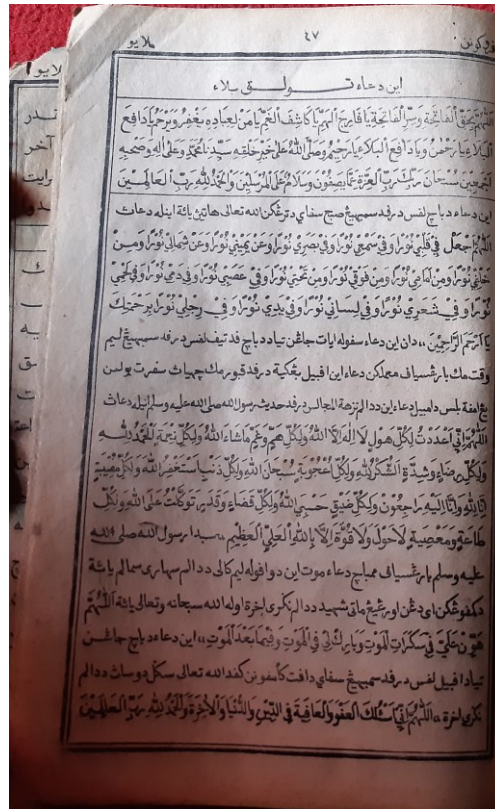 ٤٧
ملايو
اين دعاء تولق بلاء
اللهم بحق الفاتحة وسر الفاتحة يا فارج الهم يا كاشف الغم يا من لعباده يغفر ويرحم يا دافع
البلاء يا رحمن ويا دافع البلاء يا رحيم وصلى الله على خير خلقه سيدنا محمد وعلى اله وصحبه
اجمعين سبحان ربك رب العزة عما يصفون وسلام على المرسلين والحمد لله رب العالمين
اين دعاء دباچ لفس درفد سمبهيڠ صبح سفاي دترڠكن الله تعالى هاتيڽ يائة اينله دعاڽ
اللهم اجعل في قلبي نورا وفي سمعي نورا وفي بصري نورا وعن يميني نورا وعن شمالي نورا ومن
خلفي نورا ومن امامي نورا ومن فوقي نورا ومن تحتي نورا وفي عصبي نورا وفي دمي نورا وفي لحمي
نورا وفي شعري نورا وفي لساني نورا وفي يدي نورا وفي رجلي نورا برحمتك
يا ارحم الراحمين ،، دان اين دعاء سفوله ايات جاڠن تياد دباچ فد تيف لفس درفد سمبهيڠ ليم
وقت مك بارڠسياف معملكن دعاء اين افبيل بڠكية درفد قبورمك چهياڽ سفرت بولن
يڠ امفة بلس دامبيل دعاء اين ددالم نزهة المجالس درفد حديث رسول الله صلى الله عليه وسلم انيله دعاڽ
اللهم اني اعددت لكل هول لا اله الا الله ولكل هم وغم ما شاء الله ولكل نعمة الحمد لله
ولكل رخاء وشدة الشكر لله ولكل اعجوبة سبحان الله ولكل ذنب استغفر الله ولكل مصيبة
انا لله وانا اليه راجعون ولكل ضيق حسبي الله ولكل قضاء وقدر توكلت على الله ولكل
طاعة ومعصية لا حول ولا قوة الا بالله العلي العظيم ،، سبدا رسول الله صلى الله
عليه وسلم بارڠسياف ممباچ دعاء موت اين دوافوله ليم كالي ددالم سهاري سمالم يائة
دكمفوڠكن اي دڠن اورڠ يڠ ماتي شهيد ددالم نكري اخرة اوله الله سبحانه وتعالى يائة اللهم
هون علي في سكرات الموت وبارك لي في الموت وفيما بعد الموت ،، اين دعاء دباچ جاڠن
تياد افبيل لفس درفد سمبهيڠ سفاي دافت كأمفونن كفد الله تعالى سكل دوساڽ ددالم
نكري اخرة ،، اللهم اني اسئلك العفو والعافية في الدين والدنيا والاخرة والحمد لله رب العالمين